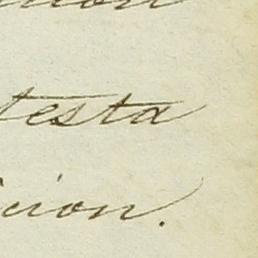 testa
icion.